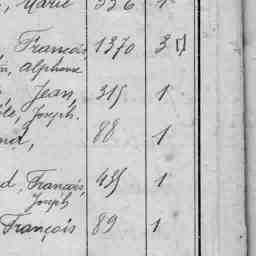 , Marie 336 1
, François 1370 3
, Alphonse
, Jean, 315 1
, Joseph.
88 1
d, François, 435 1
Joseph
François 89 1